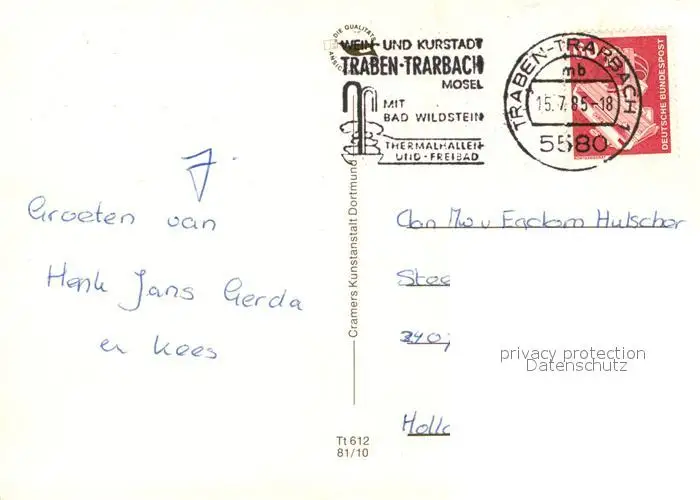 DIE QUALITÄTS
ANSICHT
WEIN- UND KURSTADT
TRABEN-TRARBACH
MOSEL
MIT
BAD WILDSTEIN
THERMALHALLEN
UND -FREIBAD
TRABEN-TRARBACH 1
mb
15.7.85-18
5580
DEUTSCHE BUNDESPOST
Groeten van
Henk Jans Gerda
en Kees
Cramers Kunstanstalt Dortmund
Tt 612
81/10
Hulscher
Stee
privacy protection
Datenschutz
Holl